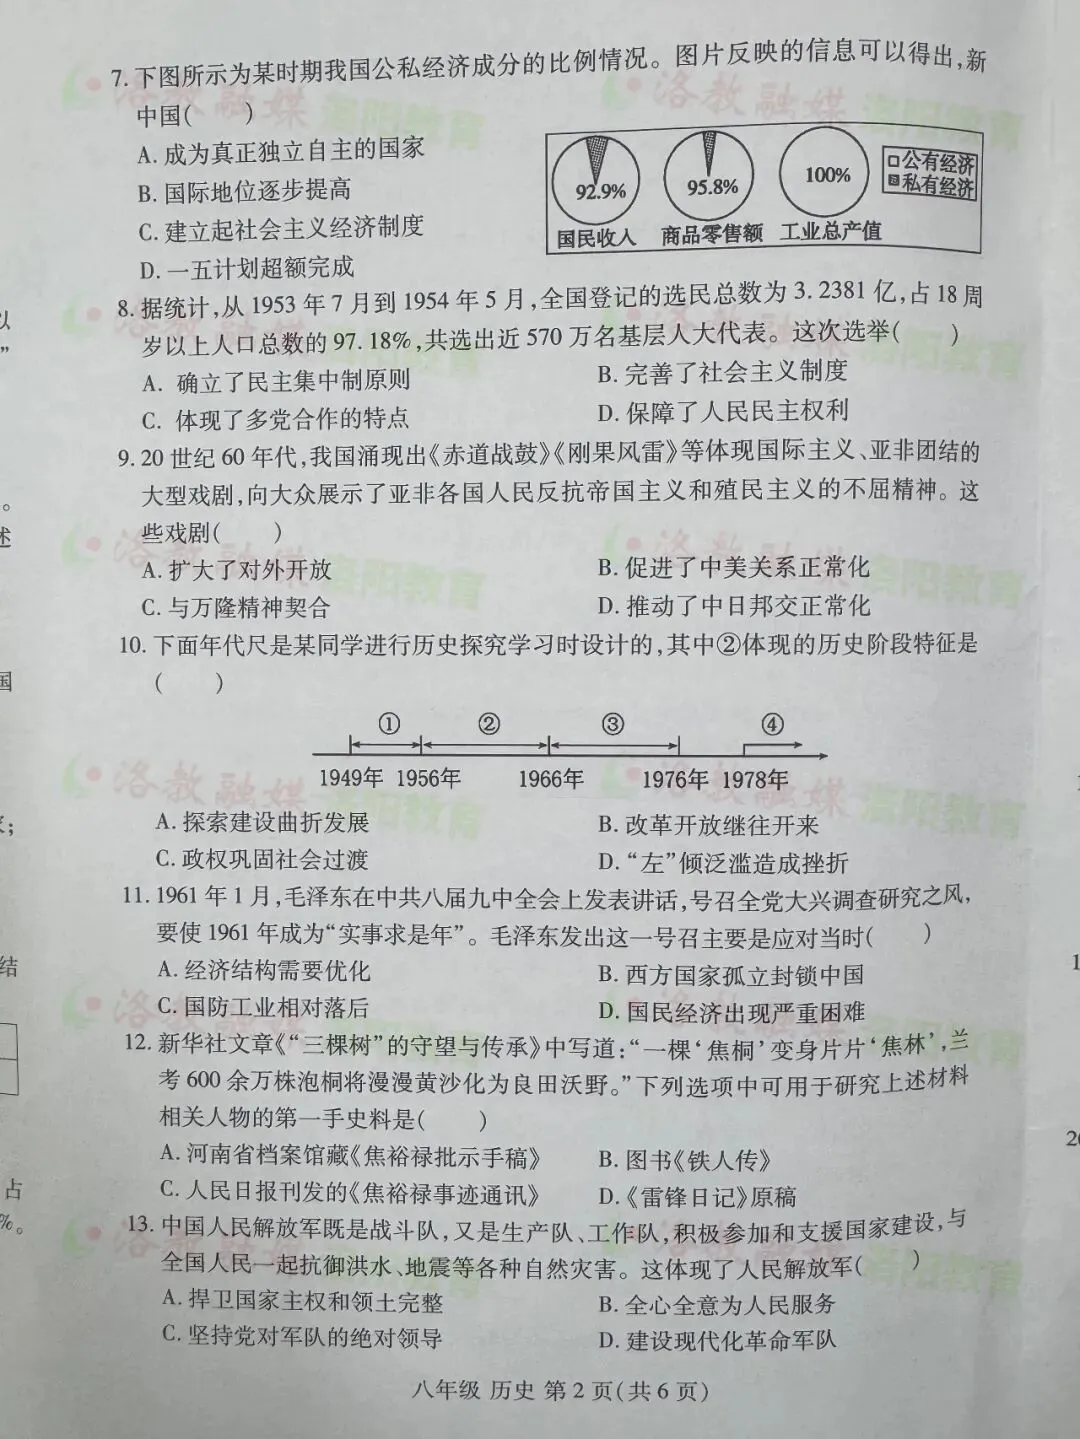 7. 下图所示为某时期我国公私经济成分的比例情况。图片反映的信息可以得出,新
中国(　　)
A. 成为真正独立自主的国家
B. 国际地位逐步提高
C. 建立起社会主义经济制度
D. 一五计划超额完成
92.9% 95.8% 100%
国民收入 商品零售额 工业总产值
公有经济
私有经济
8. 据统计,从1953年7月到1954年5月,全国登记的选民总数为3.2381亿,占18周
岁以上人口总数的97.18%,共选出近570万名基层人大代表。这次选举(　　)
A. 确立了民主集中制原则 B. 完善了社会主义制度
C. 体现了多党合作的特点 D. 保障了人民民主权利
9. 20世纪60年代,我国涌现出《赤道战鼓》《刚果风雷》等体现国际主义、亚非团结的
大型戏剧,向大众展示了亚非各国人民反抗帝国主义和殖民主义的不屈精神。这
些戏剧(　　)
A. 扩大了对外开放 B. 促进了中美关系正常化
C. 与万隆精神契合 D. 推动了中日邦交正常化
10. 下面年代尺是某同学进行历史探究学习时设计的,其中②体现的历史阶段特征是
(　　)
① ② ③ ④
1949年 1956年 1966年 1976年 1978年
A. 探索建设曲折发展 B. 改革开放继往开来
C. 政权巩固社会过渡 D. “左”倾泛滥造成挫折
11. 1961年1月,毛泽东在中共八届九中全会上发表讲话,号召全党大兴调查研究之风,
要使1961年成为“实事求是年”。毛泽东发出这一号召主要是应对当时(　　)
A. 经济结构需要优化 B. 西方国家孤立封锁中国
C. 国防工业相对落后 D. 国民经济出现严重困难
12. 新华社文章《“三棵树”的守望与传承》中写道:“一棵‘焦桐’变身片片‘焦林’,兰
考600余万株泡桐将漫漫黄沙化为良田沃野。”下列选项中可用于研究上述材料
相关人物的第一手史料是(　　)
A. 河南省档案馆藏《焦裕禄批示手稿》 B. 图书《铁人传》
C. 人民日报刊发的《焦裕禄事迹通讯》 D. 《雷锋日记》原稿
13. 中国人民解放军既是战斗队,又是生产队、工作队,积极参加和支援国家建设,与
全国人民一起抗御洪水、地震等各种自然灾害。这体现了人民解放军(　　)
A. 捍卫国家主权和领土完整 B. 全心全意为人民服务
C. 坚持党对军队的绝对领导 D. 建设现代化革命军队
八年级 历史 第2页(共6页)
洛教融媒 洛阳教育